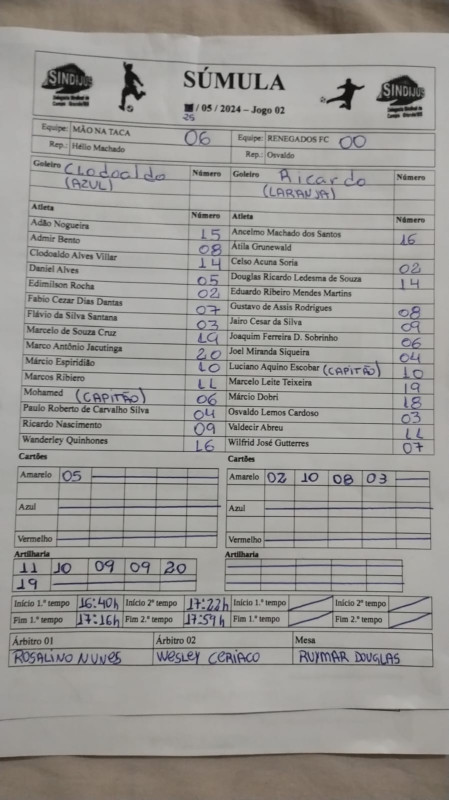 SINDIJUS
SÚMULA
SINDIJUS
/ 05 / 2024 – Jogo 02
25
Equipe: MÃO NA TACA 06 Equipe: RENEGADOS FC 00
Rep.: Hélio Machado Rep.: Osvaldo
Goleiro Clodoaldo Número Goleiro Ricardo Número
(AZUL) (LARANJA)
Atleta Número Atleta Número
Adão Nogueira 15 Ancelmo Machado dos Santos 16
Admir Bento 08 Átila Grunewald
Clodoaldo Alves Villar 14 Celso Acuna Soria 02
Daniel Alves 05 Douglas Ricardo Ledesma de Souza 14
Edimilson Rocha 02 Eduardo Ribeiro Mendes Martins
Fabio Cezar Dias Dantas 07 Gustavo de Assis Rodrigues 08
Flávio da Silva Santana 03 Jairo Cesar da Silva 09
Marcelo de Souza Cruz 19 Joaquim Ferreira D. Sobrinho 06
Marco Antônio Jacutinga 20 Joel Miranda Siqueira 04
Márcio Espiridião 10 Luciano Aquino Escobar (CAPITÃO) 10
Marcos Ribiero 11 Marcelo Leite Teixeira 19
Mohamed (CAPITÃO) 06 Márcio Dobri 18
Paulo Roberto de Carvalho Silva 04 Osvaldo Lemos Cardoso 03
Ricardo Nascimento 09 Valdecir Abreu 11
Wanderley Quinhones 16 Wilfrid José Gutterres 07
Cartões Cartões
Amarelo 05 Amarelo 02 10 08 03
Azul Azul
Vermelho Vermelho
Artilharia Artilharia
11 10 09 09 20
19
Início 1.º tempo 16:40h Início 2º tempo 17:22h Início 1.º tempo Início 2º tempo
Fim 1.º tempo 17:16h Fim 2.º tempo 17:59h Fim 1.º tempo Fim 2.º tempo
Árbitro 01 Árbitro 02 Mesa
ROSALINO NUNES WESLEY CERIACO RUYMAR DOUGLAS